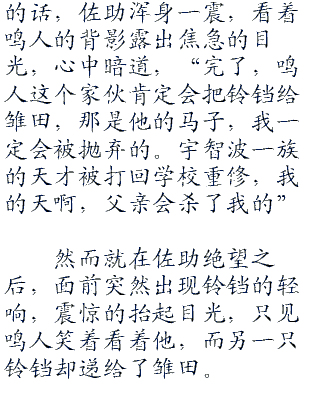 的话，佐助浑身一震，看着
鸣人的背影露出焦急的目
光，心中暗道，“完了，鸣
人这个家伙肯定会把铃铛给
雏田，那是他的马子，我一
定会被抛弃的。宇智波一族
的天才被打回学校重修，我
的天啊，父亲会杀了我的”
然而就在佐助绝望之
后，面前突然出现铃铛的轻
响，震惊的抬起目光，只见
鸣人笑着看着他，而另一只
铃铛却递给了雏田。